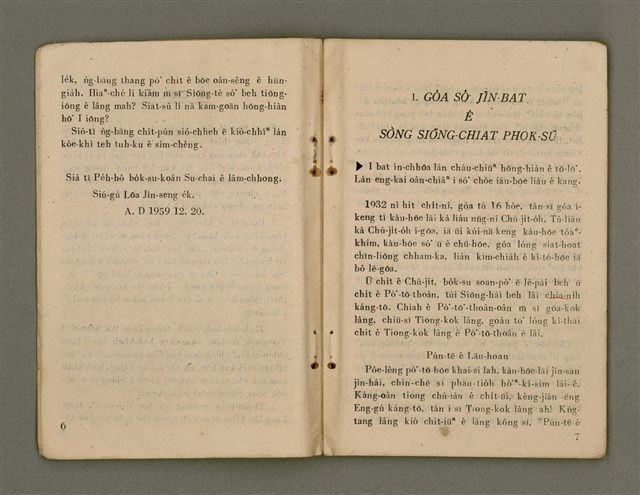 le̍k, ǹg-bāng thang pó͘ chit ê bōe oân-sêng ê hūn-
giáh. Hiaⁿ-ché lí kiám m̄ sī Siōng-tè só͘ beh tiōng-
iōng ê lâng mah? Siat-sú lí nā kam-goān hōng-hiàn
hō͘ I iōng?
Sió-tī ǹg-bāng chit-pún sió-chheh ē kiò-chhíⁿ lán
kòe-khì teh tuh-ku ê sim-chêng.
Siá tī Pe̍h-hô bo̍k-su-koán Su-chai ê lâm-chhong.
Siú-gú Lōa Jîn-seng e̍k.
A. D 1959 12. 20.
6
1. GÓA SÓ͘ JĪN-BAT
Ê
SÒNG SIŌNG-CHIAT PHOK-SŪ
I bat in-chhōa lán cháu-chiūⁿ hōng-hiàn ê tō-lō͘.
Lán eng-kai oân-chiâⁿ i só͘ chòe iáu-bōe liáu ê kang.
1932 nî hit chi̍t-nî, góa tú 16 hòe, tàn-sī góa í-
keng tī kàu-hōe lāi kà liáu nn̄g-nî Chú-ji̍t-o̍h. Tû-liáu
kà Chú-ji̍t-o̍h í-gōa, iā ūi kúi-nā-keng kàu-hōe tôaⁿ-
khîm, kàu-hōe só͘ ū ê chū-hōe, góa lóng siat-hoat
chīn-liōng chham-ka, liân kìm-chia̍h ê kî-tó-hōe iā
bô lē-gōa.
Ū chi̍t ê Chú-ji̍t, bo̍k-su soan-pò͘ ē lé-pài beh ū
chi̍t ê Pò͘-tō-thoân, tùi Siōng-hái beh lâi chia-nih
káng-tō. Chiah ê Pò͘-tō͘-thoân-oân m̄ sī góa-kok
lâng, chiū-sī Tiong-kok lâng, goán tō͘ lóng kî-thāi
chit ê Tiong-kok lâng ê Pò͘-tō-thoân ê lâi.
Pùn-tē ê Lāu-hoan
Pôe-lêng pò͘-tō-hōe khai-sí lah, kàu-hōe-lāi jîn-san
jîn-hái, chin-chē sī phāu-tio̍h hò͘ⁿ-kî-sim lâi-ê.
Káng-oân tiong chú-iàu ê chi̍t-ūi, kèng-jiân ēng
Eng-gú káng-tō, tàn i sī Tiong-kok lâng ah! Kńg-
tang lâng kiò chit-iūⁿ ê lâng kóng sī, "Pùn-tē ê
7